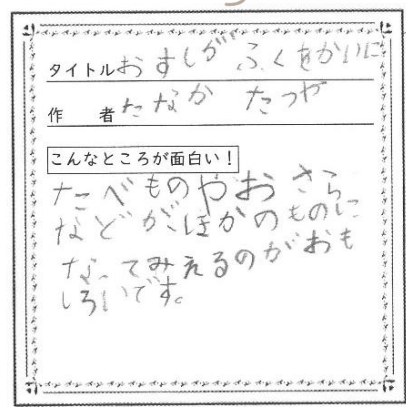 タイトル おすしが ふくをかいに
作者 たなか たつや
こんなところが面白い！
たべものやおさら
などがほかのものに
なってみえるのがおも
しろいです。